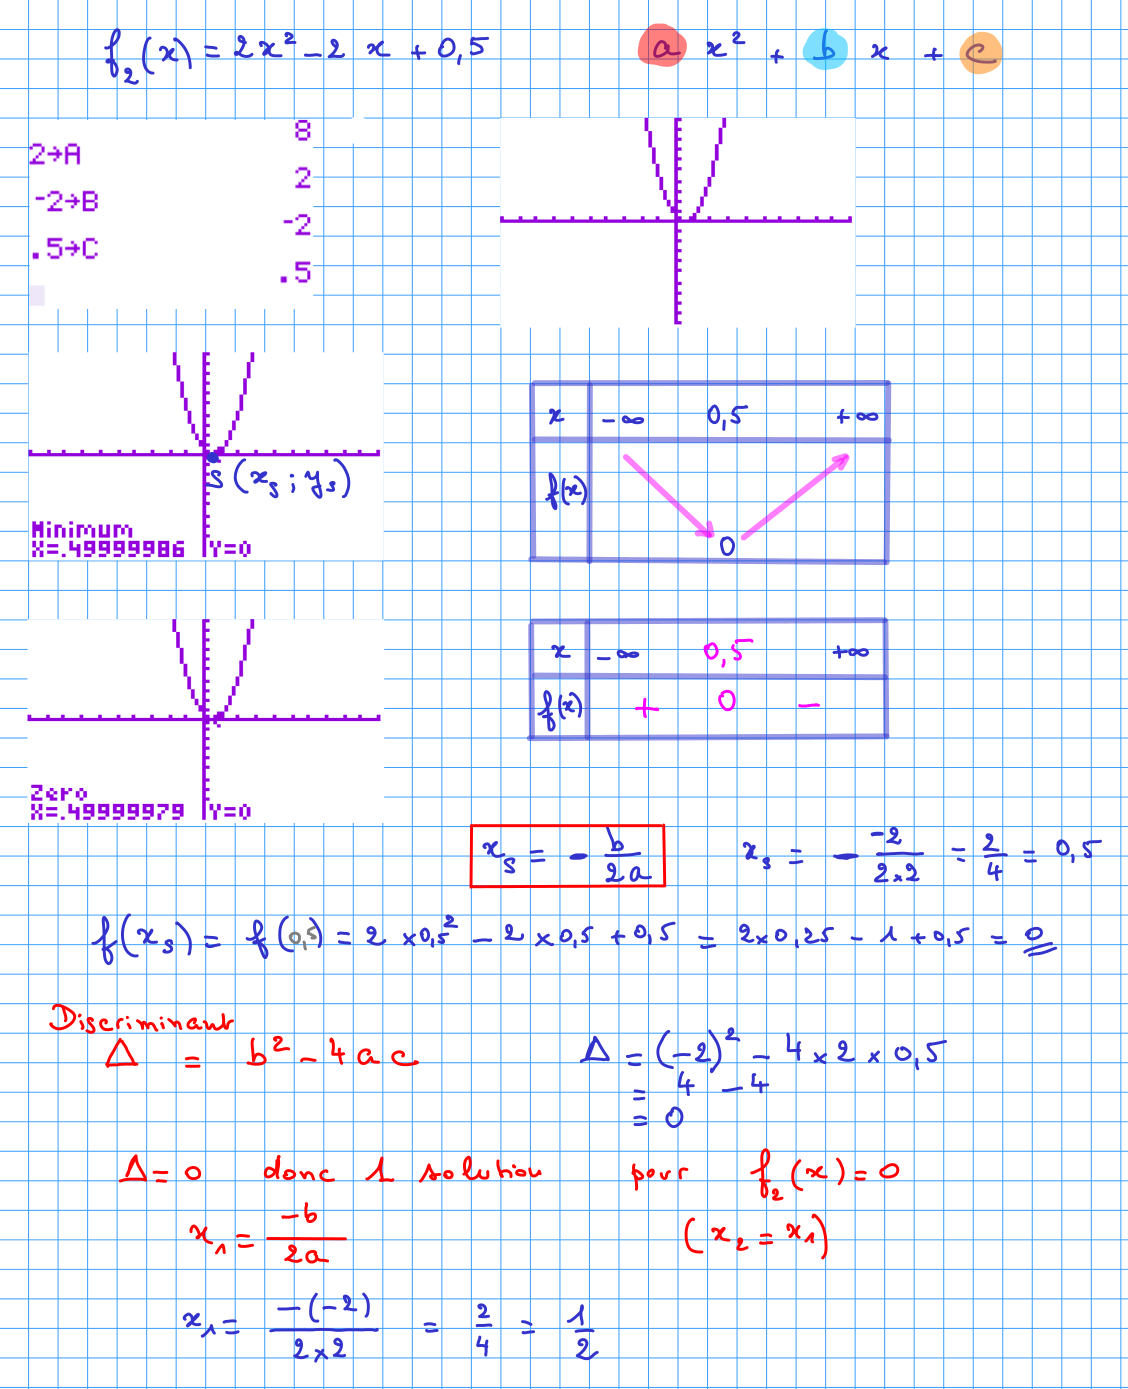 f₂(x) = 2x² - 2 x + 0,5    a x² + b x + c
8
2→A
2
-2→B
-2
.5→C
.5
S (x_s ; y_s)
Minimum
X=.49999986 Y=0
x -∞ 0,5 +∞
f(x)
0
Zero
X=.49999979 Y=0
x -∞ 0,5 +∞
f(x) + 0 -
x_s = - b/2a    x_s = - -2/2×2 = 2/4 = 0,5
f(x_s) = f(0,5) = 2 × 0,5² - 2 × 0,5 + 0,5 = 2×0,25 - 1 + 0,5 = 0
Discriminant
Δ = b² - 4 a c    Δ = (-2)² - 4 × 2 × 0,5
= 4 - 4
= 0
Δ = 0 donc 1 solution pour f₂(x) = 0
x₁ = -b/2a    (x₂ = x₁)
x₁ = -(-2)/2×2 = 2/4 = 1/2